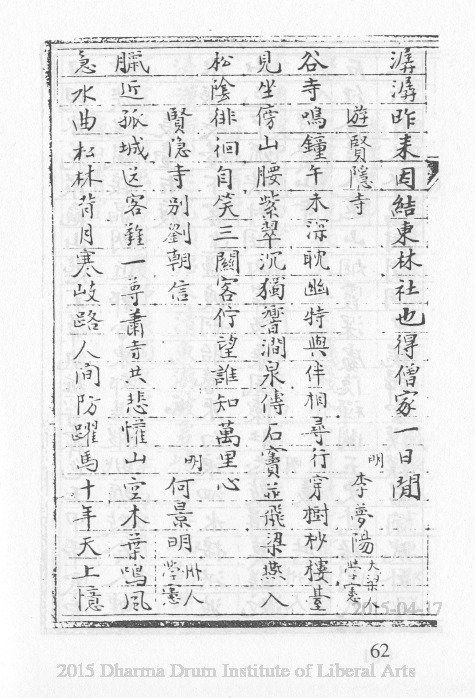 潺潺昨来因結東林社也得僧家一日閒
遊賢隱寺
明 李夢陽 大梁人 學憲
谷寺鳴鐘午未深耽幽特與伴相尋行穿樹杪樓臺
見坐傍山腰紫翠沉獨響澗泉傳石竇並飛梁燕入
松陰徘徊自笑三關客佇望誰知萬里心
賢隐寺别劉朝信
明 何景明 州人 學憲
臘近孤城送客難一尊蕭寺共悲懽山空木葉鳴風
急水曲松林背月寒歧路人间防躍馬十年天上憶
62
2015-04-17
2015 Dharma Drum Institute of Liberal Arts